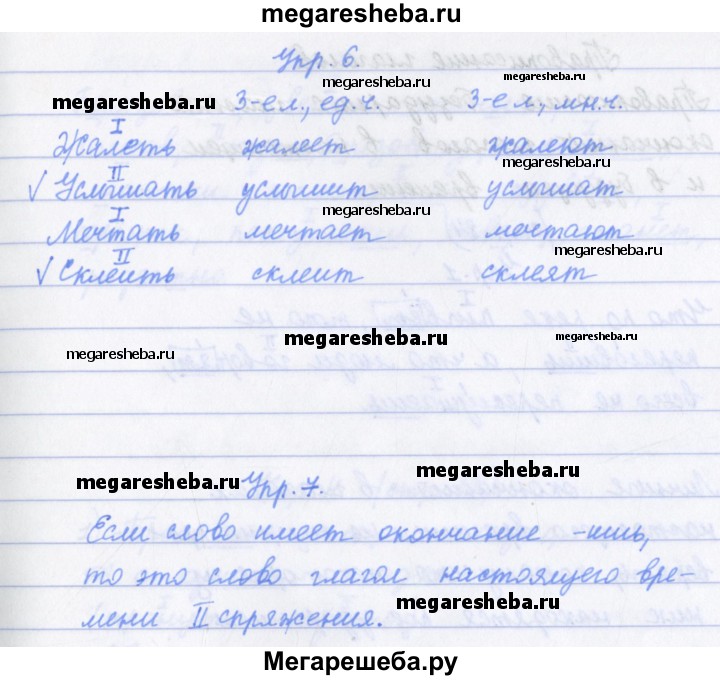 megaresheba.ru
Упр. 6.
megaresheba.ru
megaresheba.ru
megaresheba.ru
3-е л., ед.ч. 3-е л., мн.ч.
I
Жалеть жалеет жалеют
megaresheba.ru
II
√ Услышать услышит услышат
megaresheba.ru
I
Мечтать мечтает мечтают
megaresheba.ru
II
√ Склеить склеит склеят
megaresheba.ru
megaresheba.ru
megaresheba.ru
megaresheba.ru
Упр. 7.
Если слово имеет окончание -ишь,
то это слово глагол настоящего вре-
мени II спряжения.
megaresheba.ru
Мегарешеба.ру